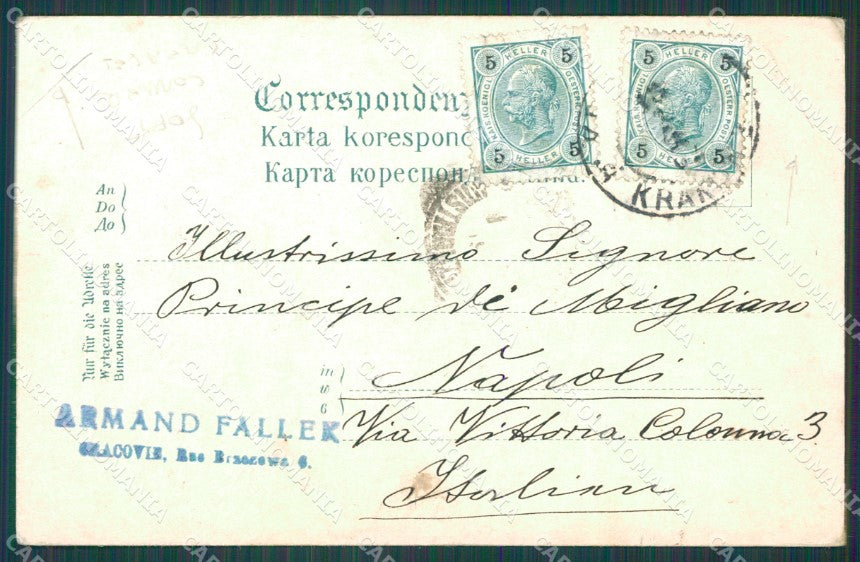 Corresponden
Karta koresponc
Карта кореспон
5 HELLER 5
KAIS. KOENIGL. OESTERR. POST
5 HELLER 5
5 HELLER 5
KAIS. KOENIGL. OESTERR. POST
5 HELLER 5
KRAK
An
Do
До
Nur für die Adresse
Wyłącznie na adres
Виключно на адрес
Illustrissimo Signore
Principe de Migliano
in
w
в
Napoli
Via Vittoria Colonna 3
Italien
ARMAND FALLEK
CRACOVIE, Rue Brzozowa 6.
CARTOLINOMANIA